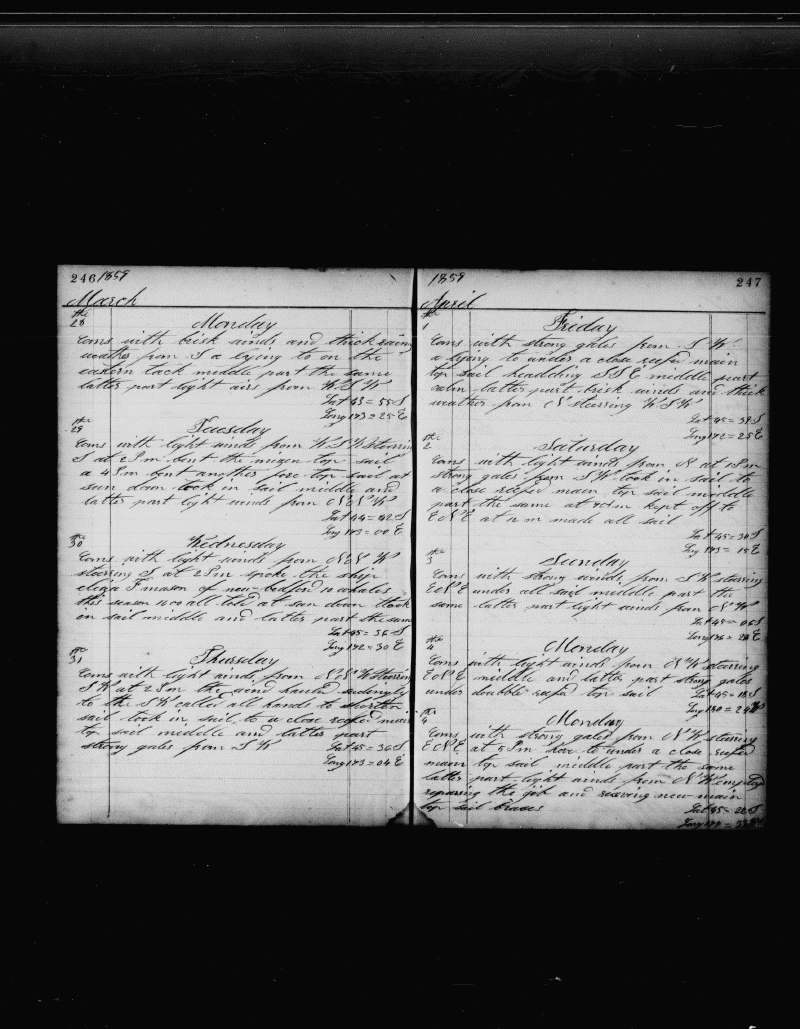 246 1859
March
the
28 Monday
Coms with brisk winds and thick rainy
weather from S a lying to on the
eastern tack middle part the same
latter part light airs from W S W
Lat 43 = 55 S
Long 173 = 25 E
the
29 Tuesday
Coms with light winds from W S W stearring
S at 2 Pm bent the mizen top sail
a 4 Pm bent another fore top sail at
sun down took in sail middle and
latter part light winds from N N W
Lat 44 = 42 S
Long 173 = 00 E
the
30 Wednesday
Coms with light winds from N N W
stearring S at 2 Pm spoke the ship
eliza F mason of new bedford 10 whales
this season 1600 all told at sun down took
in sail middle and latter part the same
Lat 45 = 36 S
Long 172 = 30 E
the
31 Thursday
Coms with light winds from N N W stearring
S W at 2 Pm the wind hauled sudingly
to the S W called all hands to shorten
sail took in sail to a close reefed main
top sail middle and latter part
strong gales from S W
Lat 45 = 36 S
Long 173 = 04 E
1859 247
April
the
1 Friday
Coms with strong gales from S W
a lying to under a close reefed main
top sail heading S S E middle part
calm latter part brisk winds and thick
weather from N stearring W S W
Lat 45 = 39 S
Long 172 = 25 E
the
2 Saturday
Coms with light winds from N at 1 Pm
strong gales from S W took in sail to
a close reefed main top sail middle
part the same at kept off to
E N E at m made all sail
Lat 45 = 30 S
Long 173 = 15 E
the
3 Sunday
Coms with strong winds from S W stearring
E N E under all sail middle part the
same latter part light winds from N W
Lat 45 = 06 S
Long 176 = 28 E
the
4 Monday
Coms with light winds from N W stearring
E N E middle and latter part strong gales
under doubble reefed top sail
Lat 45 = 18 S
Long 180 = 24
the
4 Monday
Coms with strong gales from N W stearring
E N E at 5 Pm hove to under a close reefed
main top sail middle part the same
latter part light winds from N W employed
repairing the jib and reeving new main
top sail braces
Lat 45 = 22 S
Long 179 =